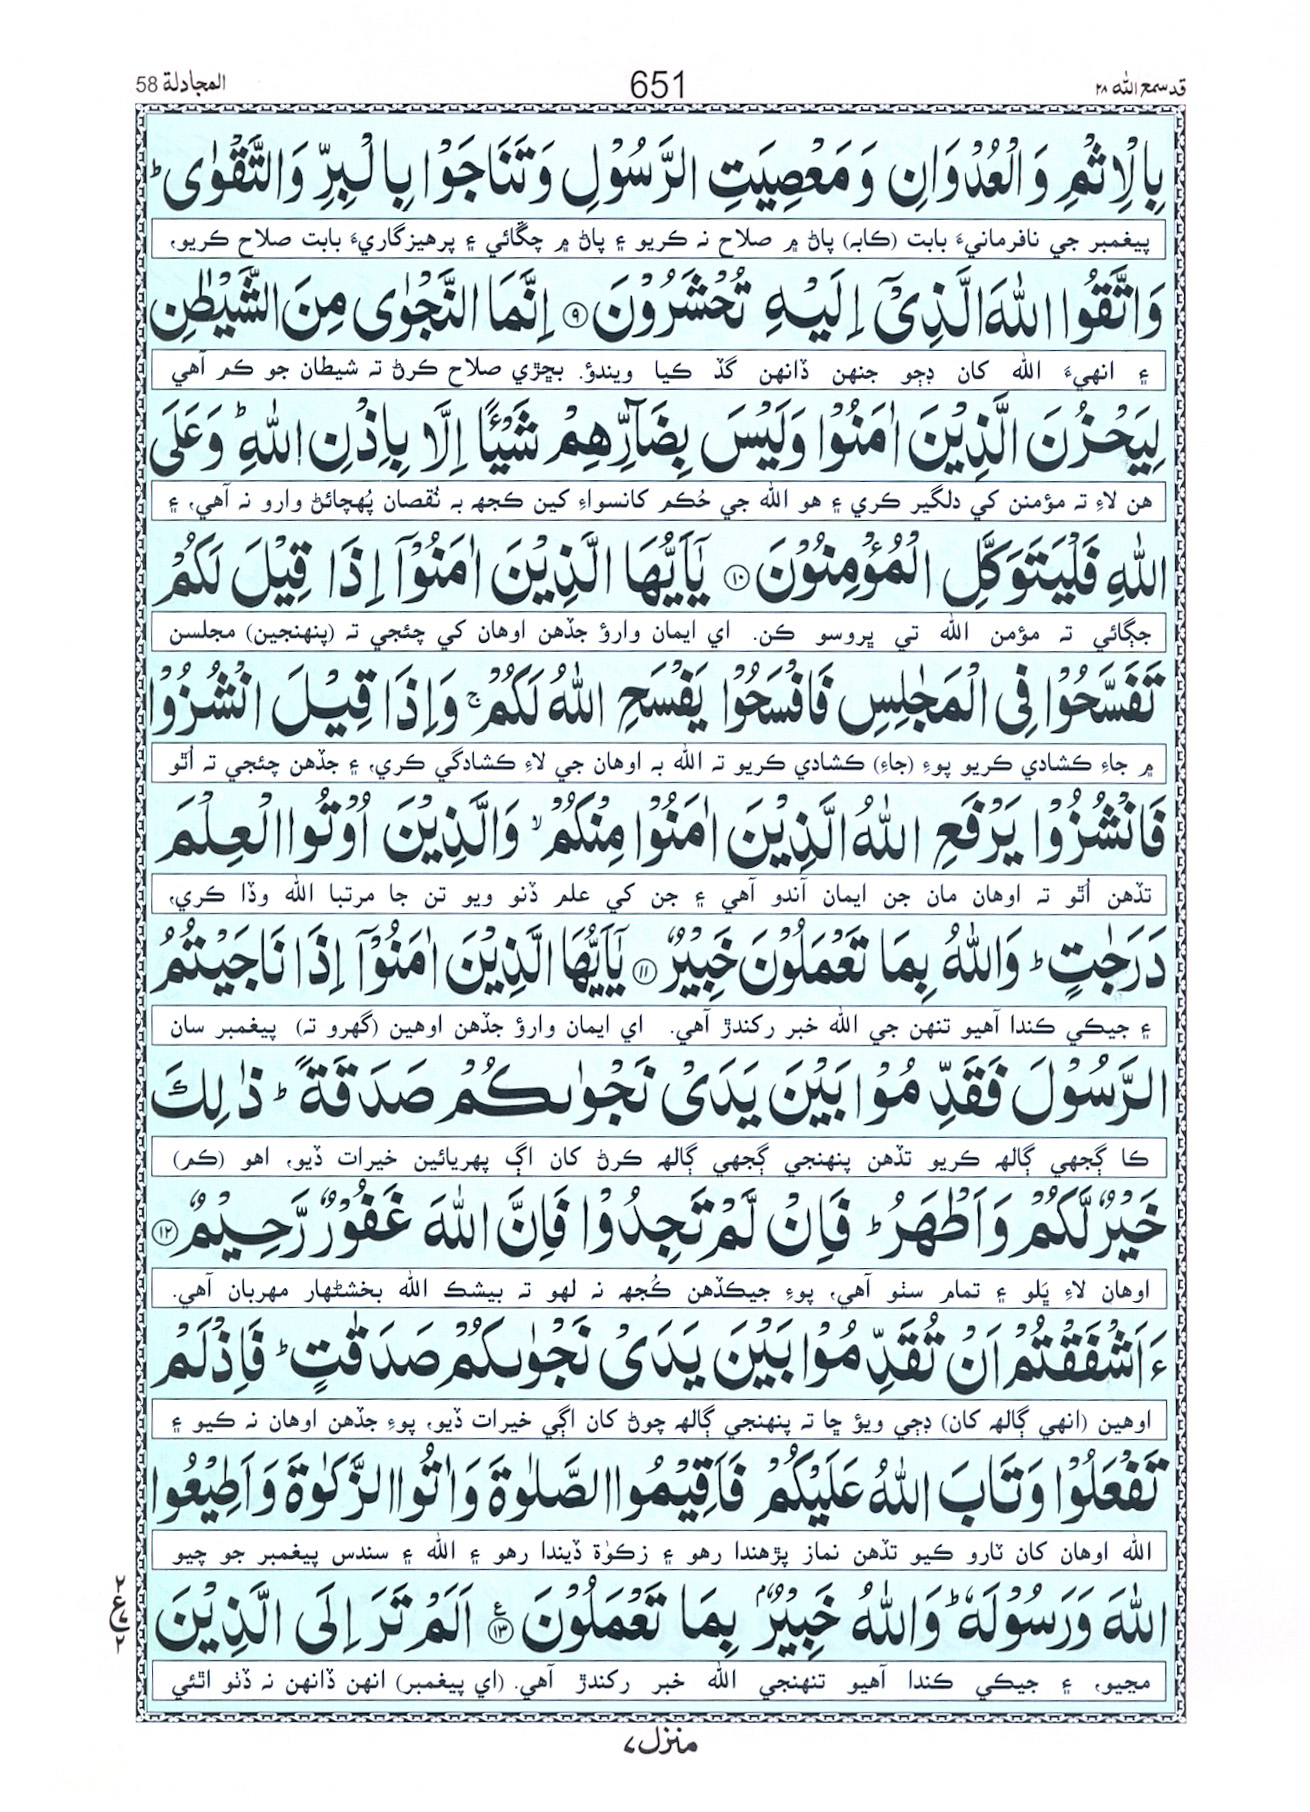 قد سمع الله ٢٨
651
المجادلة 58
بِالْاِثْمِ وَالْعُدْوَانِ وَمَعْصِيَتِ الرَّسُوْلِ وَتَنَاجَوْا بِالْبِرِّ وَالتَّقْوٰى ؕ
پيغمبر جي نافرمانيءَ بابت (ڪابہ) پاڻ ۾ صلاح نہ ڪريو ۽ پاڻ ۾ چڱائي ۽ پرهيزگاريءَ بابت صلاح ڪريو،
وَاتَّقُوا اللّٰهَ الَّذِيْٓ اِلَيْهِ تُحْشَرُوْنَ ۹ اِنَّمَا النَّجْوٰى مِنَ الشَّيْطٰنِ
۽ انهيءَ الله کان ڊڄو جنهن ڏانهن گڏ ڪيا ويندؤ. بڇڙي صلاح ڪرڻ تہ شيطان جو ڪم آهي
لِيَحْزُنَ الَّذِيْنَ اٰمَنُوْا وَلَيْسَ بِضَآرِّهِمْ شَيْـًٔا اِلَّا بِاِذْنِ اللّٰهِ ؕ وَعَلَى
هن لاءِ تہ مؤمنن کي دلگير ڪري ۽ هو الله جي حُڪم کانسواءِ کين ڪجهہ بہ نُقصان پُهچائڻ وارو نہ آهي، ۽
اللّٰهِ فَلْيَتَوَكَّلِ الْمُؤْمِنُوْنَ ۱۰ يٰٓاَيُّهَا الَّذِيْنَ اٰمَنُوْٓا اِذَا قِيْلَ لَكُمْ
جڳائي تہ مؤمن الله تي ڀروسو ڪن. اي ايمان وارؤ جڏهن اوهان کي چئجي تہ (پنهنجين) مجلسن
تَفَسَّحُوْا فِي الْمَجٰلِسِ فَافْسَحُوْا يَفْسَحِ اللّٰهُ لَكُمْ ۚ وَاِذَا قِيْلَ انْشُزُوْا
۾ جاءِ ڪشادي ڪريو پوءِ (جاءِ) ڪشادي ڪريو تہ الله بہ اوهان جي لاءِ ڪشادگي ڪري، ۽ جڏهن چئجي تہ اُٿو
فَانْشُزُوْا يَرْفَعِ اللّٰهُ الَّذِيْنَ اٰمَنُوْا مِنْكُمْ ۙ وَالَّذِيْنَ اُوْتُوا الْعِلْمَ
تڏهن اُٿو تہ اوهان مان جن ايمان آندو آهي ۽ جن کي علم ڏنو ويو تن جا مرتبا الله وڏا ڪري،
دَرَجٰتٍ ؕ وَاللّٰهُ بِمَا تَعْمَلُوْنَ خَبِيْرٌ ۱۱ يٰٓاَيُّهَا الَّذِيْنَ اٰمَنُوْٓا اِذَا نَاجَيْتُمُ
۽ جيڪي ڪندا آهيو تنهن جي الله خبر رکندڙ آهي. اي ايمان وارؤ جڏهن اوهين (گهرو تہ) پيغمبر سان
الرَّسُوْلَ فَقَدِّمُوْا بَيْنَ يَدَيْ نَجْوٰىكُمْ صَدَقَةً ؕ ذٰلِكَ
ڪا ڳجهي ڳالهہ ڪريو تڏهن پنهنجي ڳجهي ڳالهہ ڪرڻ کان اڳ پهريائين خيرات ڏيو، اهو (ڪم)
خَيْرٌ لَّكُمْ وَاَطْهَرُ ؕ فَاِنْ لَّمْ تَجِدُوْا فَاِنَّ اللّٰهَ غَفُوْرٌ رَّحِيْمٌ ۱۲
اوهان لاءِ ڀَلو ۽ تمام سٺو آهي، پوءِ جيڪڏهن ڪُجهہ نہ لهو تہ بيشڪ الله بخشڻهار مهربان آهي.
ءَاَشْفَقْتُمْ اَنْ تُقَدِّمُوْا بَيْنَ يَدَيْ نَجْوٰىكُمْ صَدَقٰتٍ ؕ فَاِذْ لَمْ
اوهين (انهي ڳالهہ کان) ڊڄي ويؤ ڇا تہ پنهنجي ڳالهہ چوڻ کان اڳي خيرات ڏيو، پوءِ جڏهن اوهان نہ ڪيو ۽
تَفْعَلُوْا وَتَابَ اللّٰهُ عَلَيْكُمْ فَاَقِيْمُوا الصَّلٰوةَ وَاٰتُوا الزَّكٰوةَ وَاَطِيْعُوا
الله اوهان کان ٽارو ڪيو تڏهن نماز پڙهندا رهو ۽ زڪوٰة ڏيندا رهو ۽ الله ۽ سندس پيغمبر جو چيو
اللّٰهَ وَرَسُوْلَهٗ ؕ وَاللّٰهُ خَبِيْرٌۢ بِمَا تَعْمَلُوْنَ ۱۳ اَلَمْ تَرَ اِلَى الَّذِيْنَ
مڃيو، ۽ جيڪي ڪندا آهيو تنهنجي الله خبر رکندڙ آهي. (اي پيغمبر) انهن ڏانهن نہ ڏٺو اٿئي
۲ ع ۲
منزل ۷